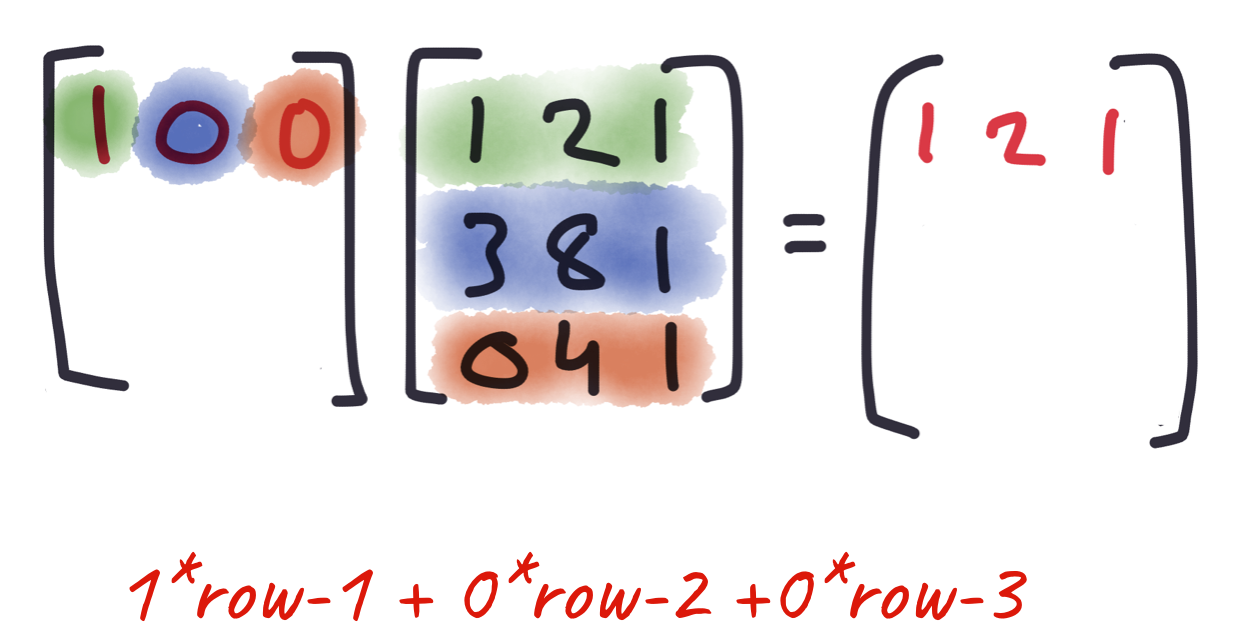 1 0 0 1 2 1 = 1 2 1
3 8 1
0 4 1
1*row-1 + 0*row-2 +0*row-3